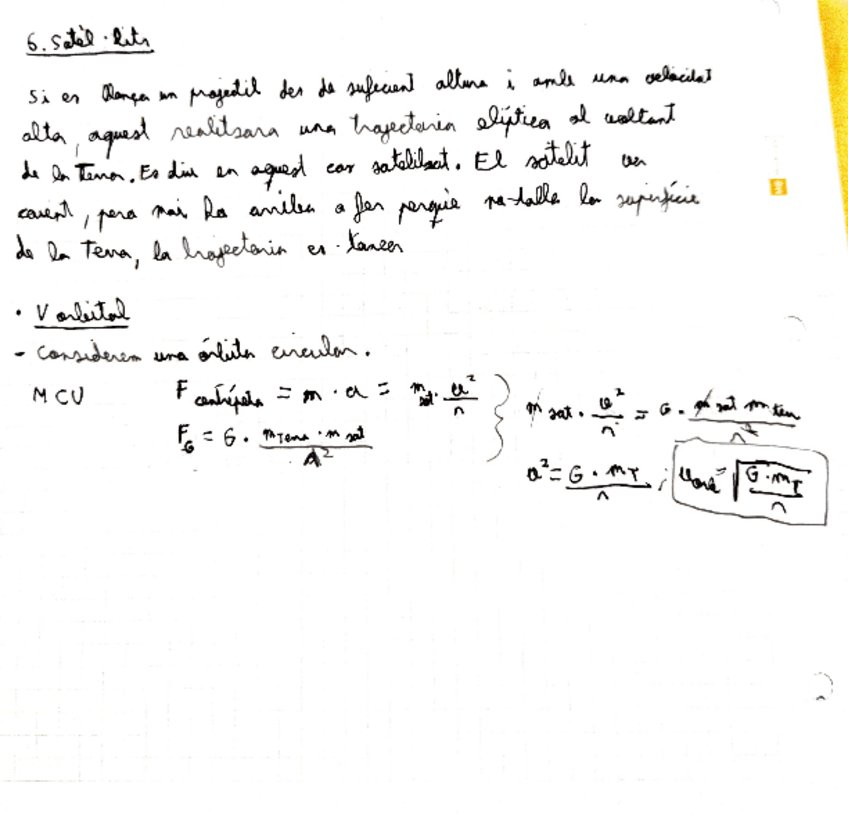 6. Satèl·lits
Si es llança un projectil des de suficient altura i amb una velocitat
alta, aquest realitsara una trajectoria elíptica al voltant
de la Terra. Es diu en aquest cas satelitzat. El satelit va
caient, pero mai ho arriba a fer perquè la superfície
de la Terra, la trajectoria es tanca
• V orbital
- Considerem una órbita circular.
MCU F centrípeta = m · a = m sat · v²/r } m sat · v²/r = G · m sat m terr/r²
F_G = G · m Terra · m sat/d²
v² = G · m_T/r ; v orb = √(G · m_T/r)